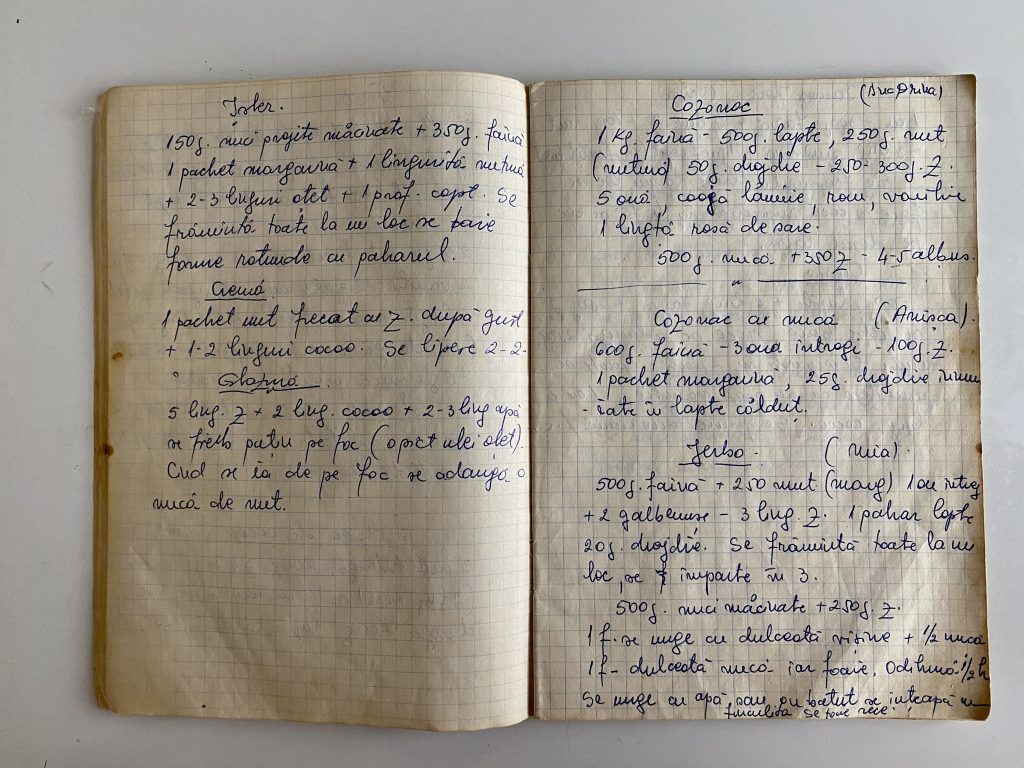 Isler.
150g. nuci prăjite măcinate + 350g. făină
1 pachet margarină + 1 linguriță netură
+ 2-3 linguri oțet + 1 praf. copt. Se
frămîntă toate la un loc se taie
forme rotunde cu paharul.
Cremă
1 pachet unt frecat cu Z. după gust
+ 1-2 linguri cacao. Se lipesc 2-2-
Glazură
5 ling. Z + 2 ling. cacao + 2-3 ling apă
se freacă puțin pe foc (opict ulei oțet).
Cînd se ia de pe foc se adaugă o
nucă de unt.
Cozonac (Ana Drina)
1 kg. făină - 500g. lapte, 250g. unt
(untură) 50g. drojdie - 250-300g. Z.
5 ouă, coajă lămîie, rom, vanilie
1 lingță rasă de sare.
500g. nucă + 350 Z - 4-5 albuș.
Cozonac cu nucă (Anișca).
600g. făină - 3 ouă întregi - 100g. Z.
1 pachet margarină, 25g. drojdie înmu
- iate în lapte călduț.
Jerbo. (nuca).
500g. făină + 250 unt (marg) 1 ou întreg
+ 2 gălbenușe - 3 ling. Z. 1 pahar lapte
20g. drojdie. Se frămîntă toate la un
loc, se împarte în 3.
500g. nuci măcinate + 250g. Z.
1 f. se unge cu dulceață vișine + 1/2 nucă
1 f - dulceață nucă iar foaie. Odihnă 1/2 h
Se unge cu apă, sau ou bătut se înțeapă cu
furculița Se taie rece.